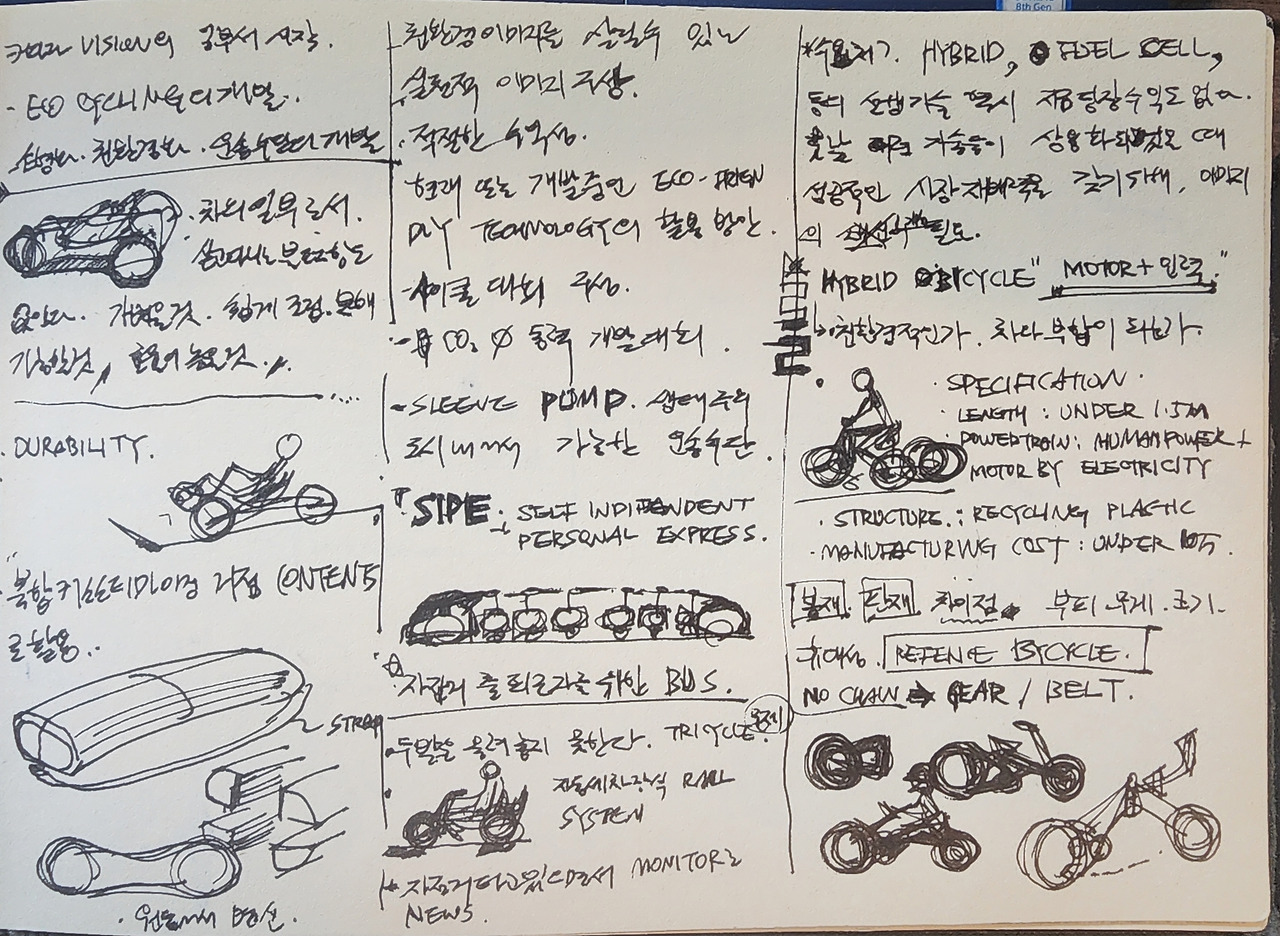 VISION의 공부서 시작.
- ECO
친환경화. 운송수단의 개발
차의 일부로서.
없이다. 가벼울것. 쉽게 조립. 분해
가능한것, 효율이 높을것.
DURABILITY.
CONTENTS
로 활용..
STRAP
친환경 이미지를 살릴수 있는
실천적 이미지 구상.
· 적절한 수익성.
현재 또는 개발중인 ECO-FRIEN
DLY TECHNOLOGY의 활용 방안.
- 사이클 대회 구성.
- CO₂ Ø 동력 개발대회.
- SLEEVE PUMP.
도시내에서 가능한 운송수단.
"SIPE. SELF INDIPENDENT
PERSONAL EXPRESS.
자전거 출퇴근자를 위한 BUS.
· 두발을 올려놓지 못한다. TRICYCLE.
RAIL
SYSTEM
* 자전거타고있으면서 MONITOR로
NEWS.
HYBRID, FUEL CELL,
등의 신생기술 역시 지금당장 수익도 없다.
훗날 기술들이 상용화 되었을 때
성공적인 시장지배력을 갖기위해, 이미지
의 필요.
HYBRID BICYCLE" MOTOR + 인력."
친환경적인가. 차와 부합이 되는가.
· SPECIFICATION.
· LENGTH : UNDER 1.5M
· POWERTRAIN : HUMAN POWER +
MOTOR BY ELECTRICITY
· STRUCTURE : RECYCLING PLASTIC
· MANUFACTURING COST : UNDER
봉재. 판재. 차이점. 부피. 무게. 크기.
휴대성. REFENCE BYCYCLE.
NO CHAIN → GEAR / BELT.
8th Gen